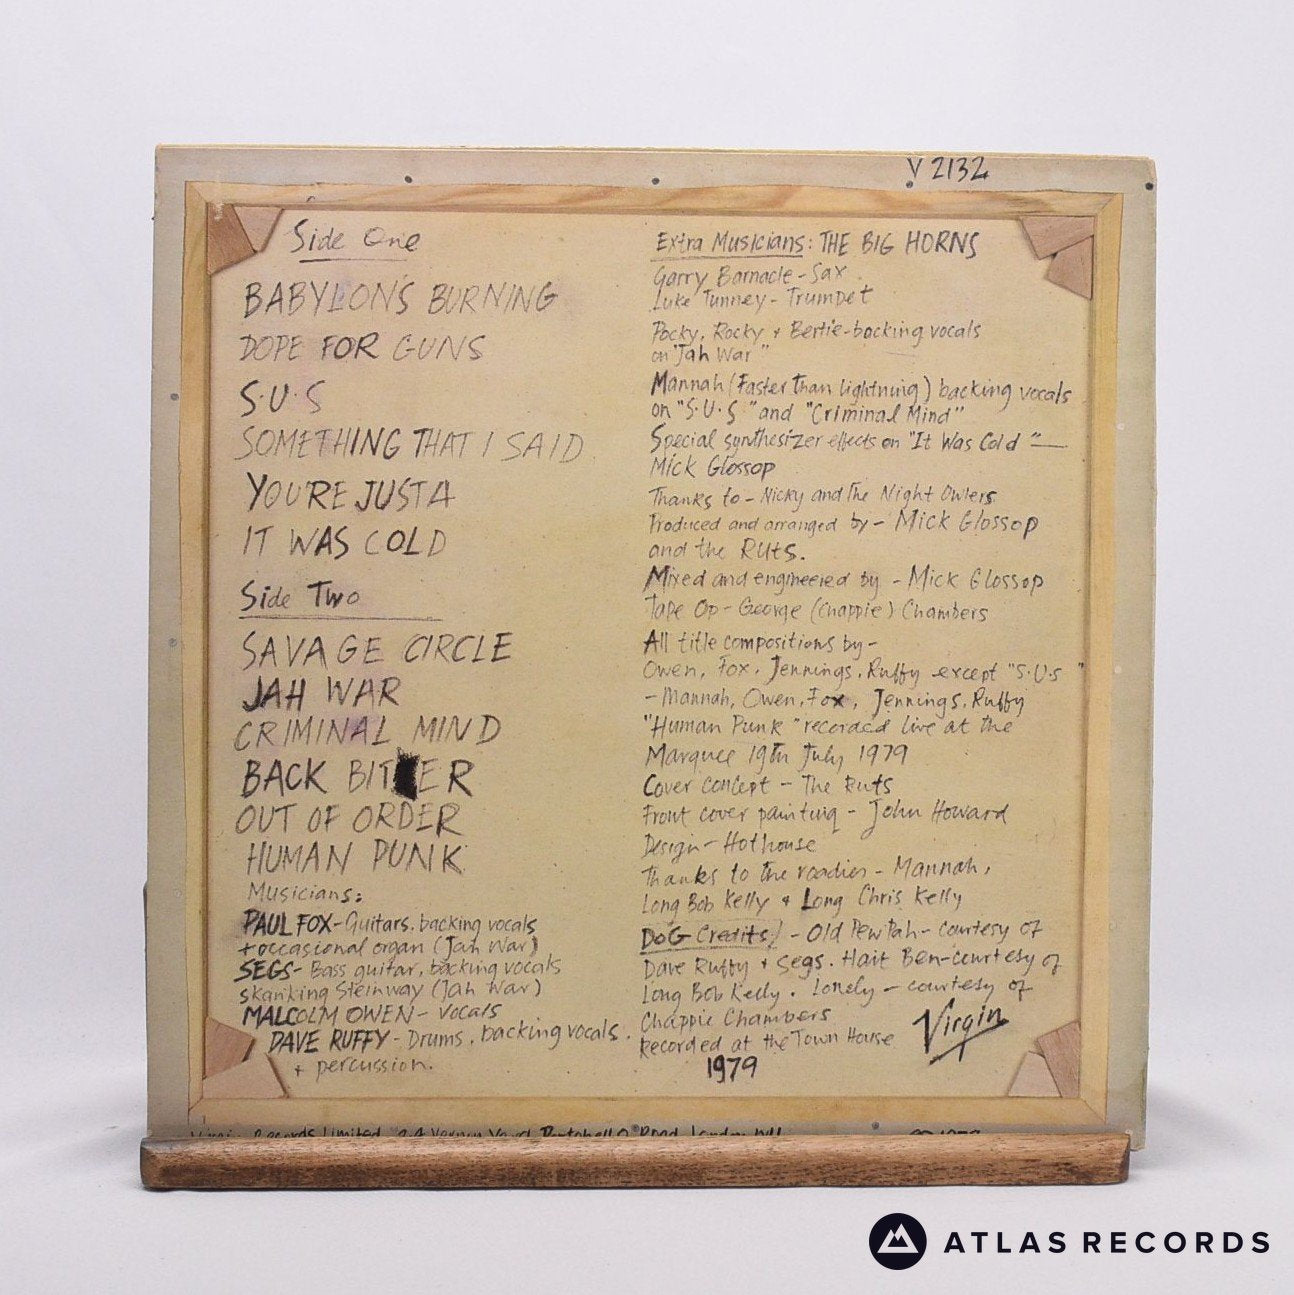 V 2132
Side One
BABYLON'S BURNING
DOPE FOR GUNS
S.U.S
SOMETHING THAT I SAID
YOU'RE JUST A
IT WAS COLD
Side Two
SAVAGE CIRCLE
JAH WAR
CRIMINAL MIND
BACK BITER
OUT OF ORDER
HUMAN PUNK
Musicians:
PAUL FOX- Guitars, backing vocals
+ occasional organ (Jah War)
SEGS- Bass guitar, backing vocals
skanking Steinway (Jah War)
MALCOLM OWEN- Vocals
DAVE RUFFY - Drums, backing vocals.
+ percussion.
Extra Musicians: THE BIG HORNS
Garry Barnacle - Sax.
Luke Tunney - Trumpet
Pocky, Rocky + Bertie - backing vocals
on "Jah War"
Mannah (Faster than lightning) backing vocals
on "S.U.S" and "Criminal Mind"
Special synthesizer effects on "It Was Cold" -
Mick Glossop
Thanks to - Nicky and The Night Owlers
Produced and arranged by - Mick Glossop
and the Ruts.
Mixed and engineered by - Mick Glossop
Tape Op - George (Chappie) Chambers
All title compositions by -
Owen, Fox, Jennings, Ruffy except "S.U.S"
- Mannah, Owen, Fox, Jennings, Ruffy
"Human Punk" recorded live at the
Marquee 19th July 1979
Cover concept - The Ruts
Front cover painting - John Howard
Design - Hothouse
Thanks to the roadies - Mannah,
Long Bob Kelly + Long Chris Kelly
DOG Credits/ - Old Pew Pah - courtesy of
Dave Ruffy + Segs. Hait Ben - courtesy of
Long Bob Kelly. Lonely - courtesy of
Chappie Chambers
Recorded at the Town House
1979
Virgin
Records Limited, 2-4 Vernon Yard, Portobello Road, London W11
ATLAS RECORDS